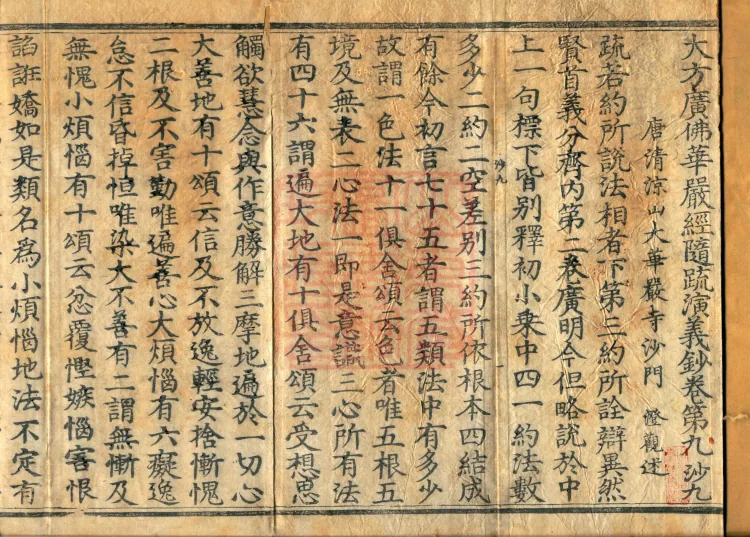 大方廣佛華嚴經隨疏演義鈔卷第九 沙九
唐清涼山大華嚴寺沙門 澄觀述
疏若約所說法相者下第三約所詮辯異然
賢首義分齊內第二卷廣明今但略說於中
上一句標下皆別釋初小乘中四一約法數
沙九
多少二約二空差別三約所依根本四結成
有餘今初言七十五者謂五類法中有多少
故謂一色法十一俱舍頌云色者唯五根五
境及無表二心法一即是意識三心所有法
有四十六謂遍大地有十俱舍頌云受想思
觸欲慧念與作意勝解三摩地遍於一切心
大善地有十頌云信及不放逸輕安捨慚愧
二根及不害勤唯遍善心大煩惱有六癡逸
怠不信昏掉恒唯染大不善有二謂無慚及
無愧小煩惱有十頌云忿覆慳嫉惱害恨
諂誑憍如是類名為小煩惱地法不定有